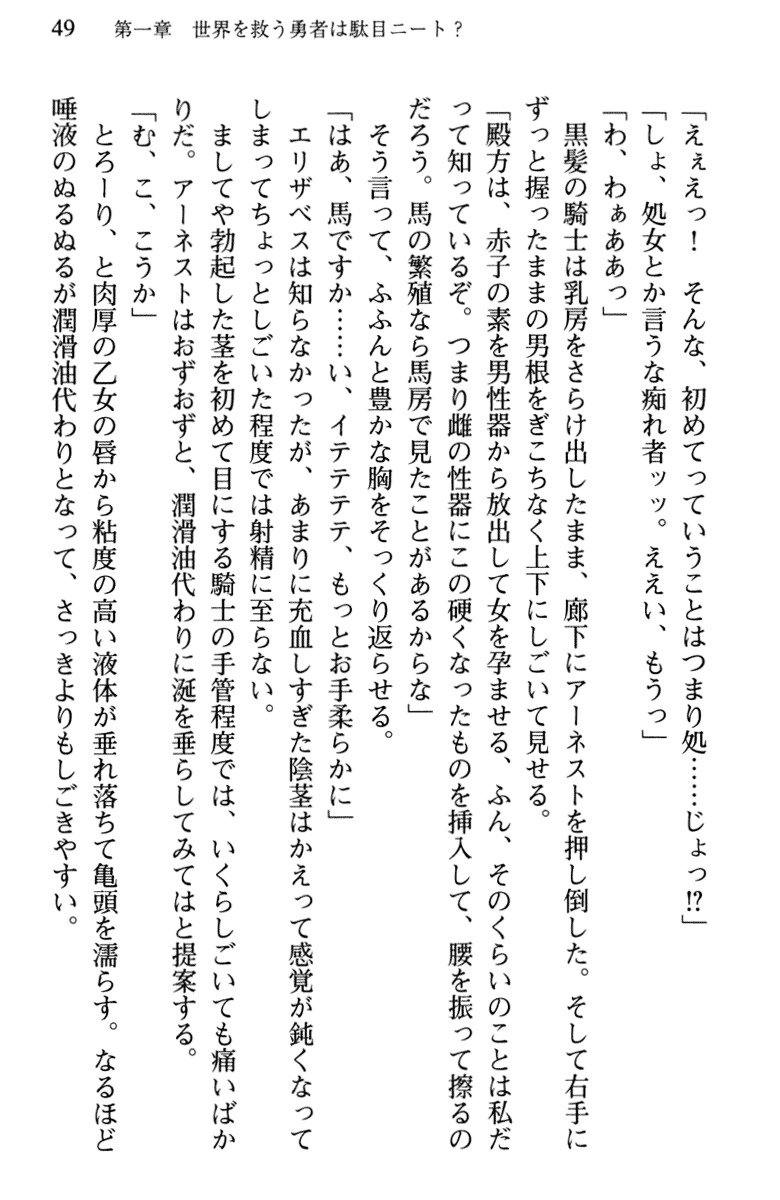 49　第一章　世界を救う勇者は駄目ニート？
「えぇえっ！　そんな、初めてっていうことはつまり処……じょっ!?」
「しょ、処女とか言うな痴れ者ッッ。ええい、もうっ」
「わ、わぁああっ」
　黒髪の騎士は乳房をさらけ出したまま、廊下にアーネストを押し倒した。そして右手に
ずっと握ったままの男根をぎこちなく上下にしごいて見せる。
「殿方は、赤子の素を男性器から放出して女を孕ませる、ふん、そのくらいのことは私だ
って知っているぞ。つまり雌の性器にこの硬くなったものを挿入して、腰を振って擦るの
だろう。馬の繁殖なら馬房で見たことがあるからな」
　そう言って、ふふんと豊かな胸をそっくり返らせる。
「はあ、馬ですか……い、イテテテテ、もっとお手柔らかに」
　エリザベスは知らなかったが、あまりに充血しすぎた陰茎はかえって感覚が鈍くなって
しまってちょっとしごいた程度では射精に至らない。
　ましてや勃起した茎を初めて目にする騎士の手管程度では、いくらしごいても痛いばか
りだ。アーネストはおずおずと、潤滑油代わりに涎を垂らしてみてはと提案する。
「む、こ、こうか」
　とろーり、と肉厚の乙女の唇から粘度の高い液体が垂れ落ちて亀頭を濡らす。なるほど
唾液のぬるぬるが潤滑油代わりとなって、さっきよりもしごきやすい。